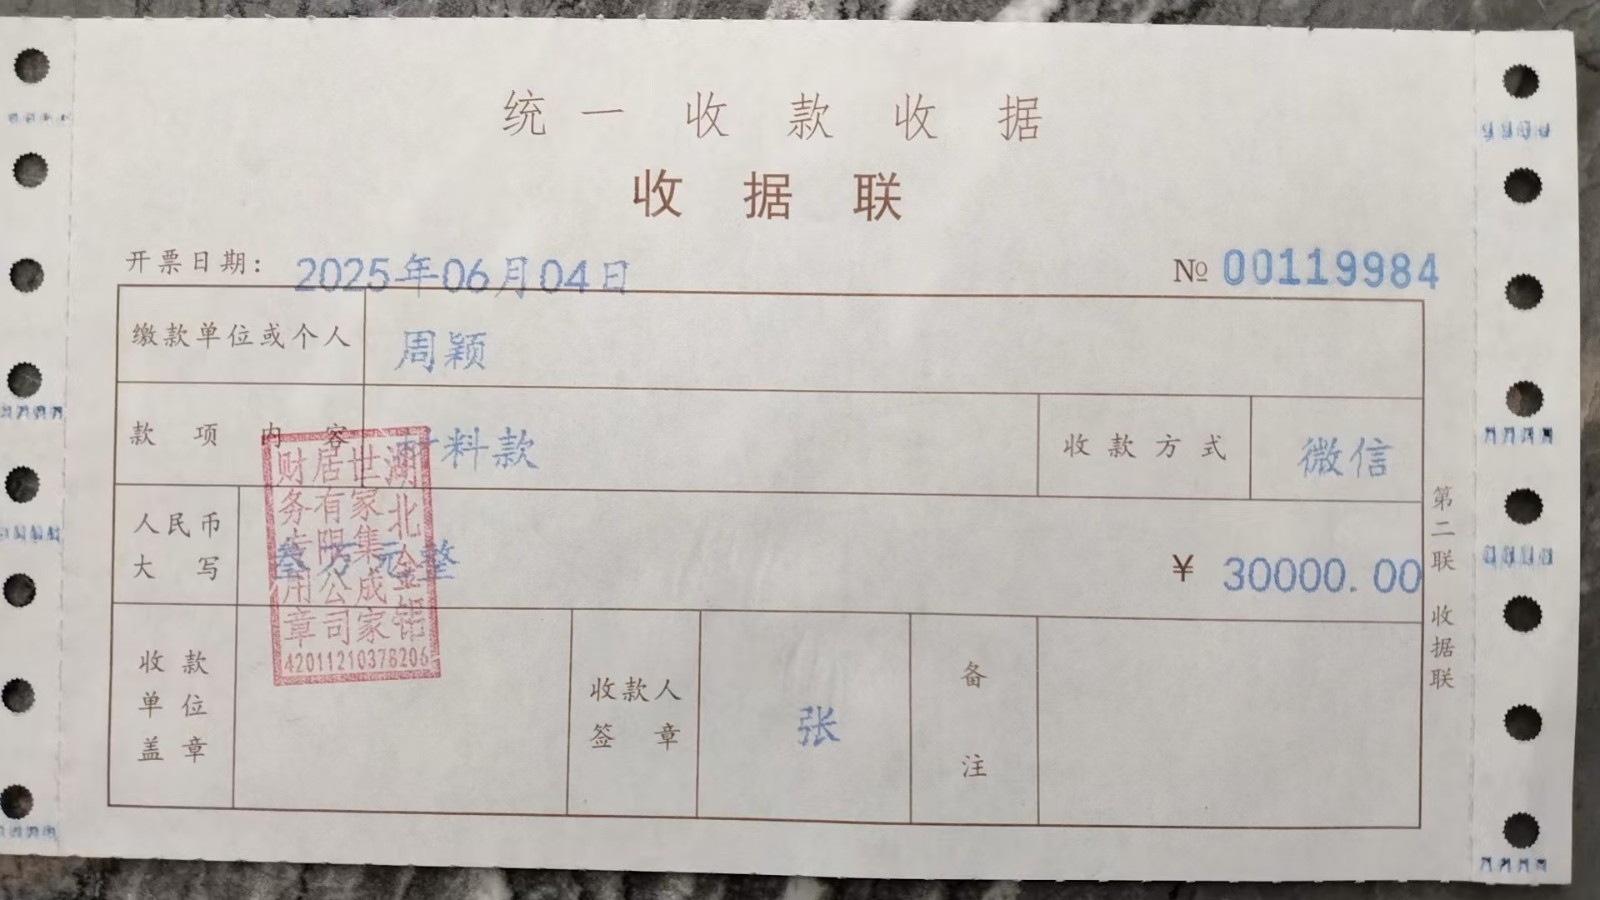 统一收款收据
收据联
开票日期: 2025年06月04日
№ 00119984
缴款单位或个人 周颖
款项内容 材料款 收款方式 微信
人民币大写 叁万元整 ¥ 30000.00
收款单位盖章
收款人签章 张
备注
第二联 收据联
湖北金铝
世家集成家
居有限公司
财务专用章
42011210378206